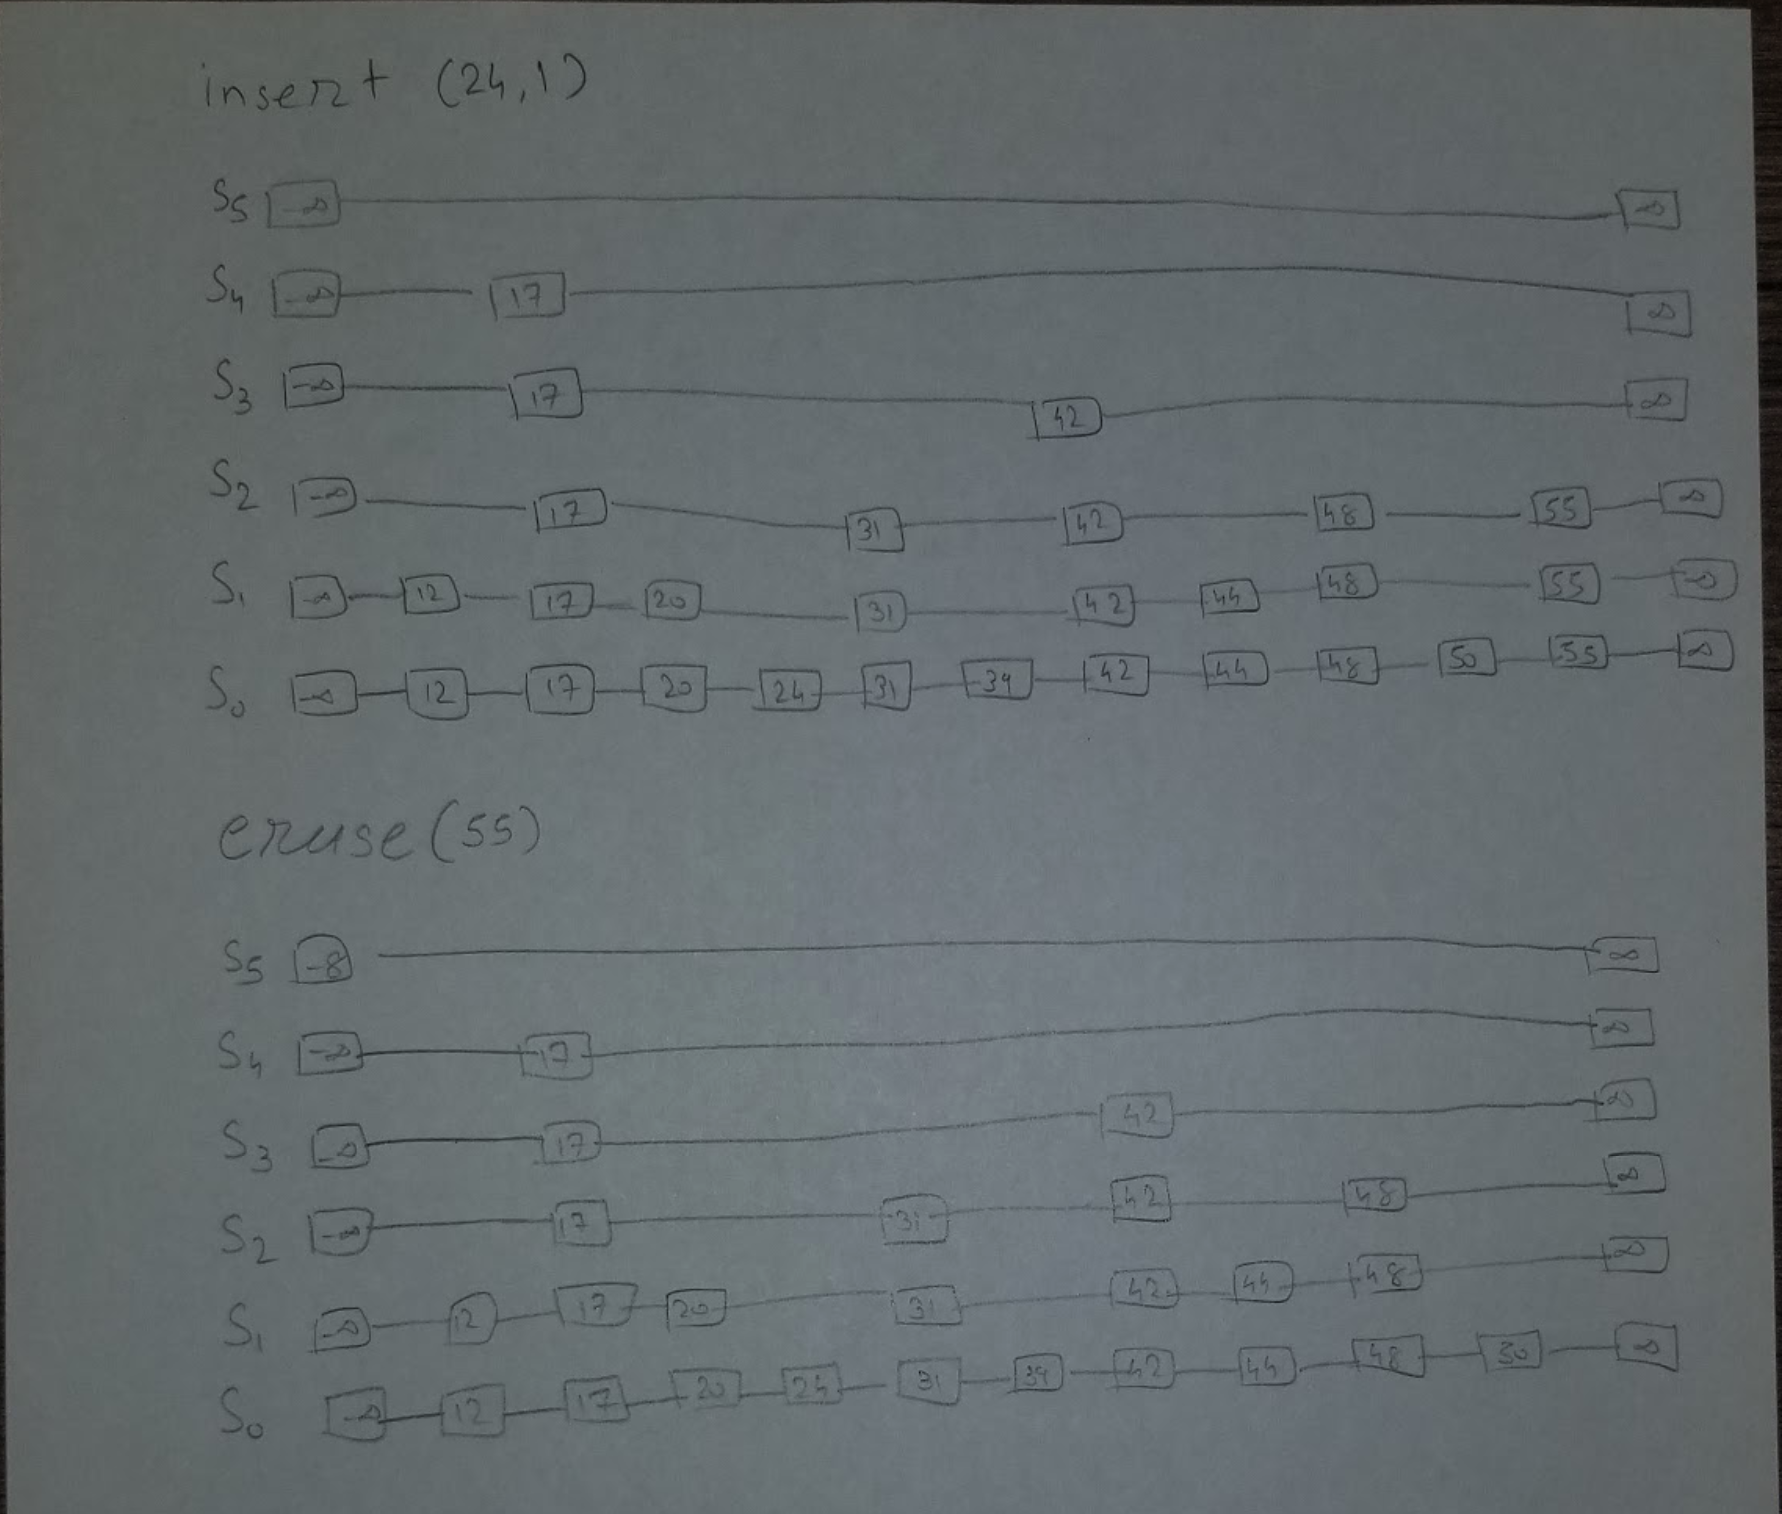 insert (24,1)
S5 -∞ ∞
S4 -∞ 17 ∞
S3 -∞ 17 42 ∞
S2 -∞ 17 31 42 48 55 ∞
S1 -∞ 12 17 20 31 42 44 48 55 ∞
S0 -∞ 12 17 20 24 31 39 42 44 48 50 55 ∞
eruse (55)
S5 -8 ∞
S4 -∞ 17 ∞
S3 -∞ 17 42 ∞
S2 -∞ 17 31 42 48 ∞
S1 -∞ 12 17 20 31 42 44 48 ∞
S0 -∞ 12 17 20 24 31 39 42 44 48 50 ∞